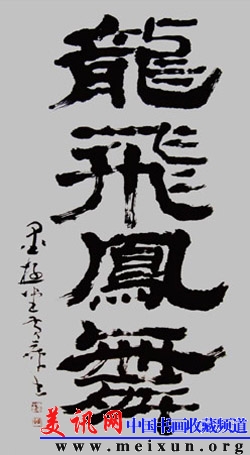 龍飛鳳舞
美讯网 中国书画收藏频道
www.meixun.org